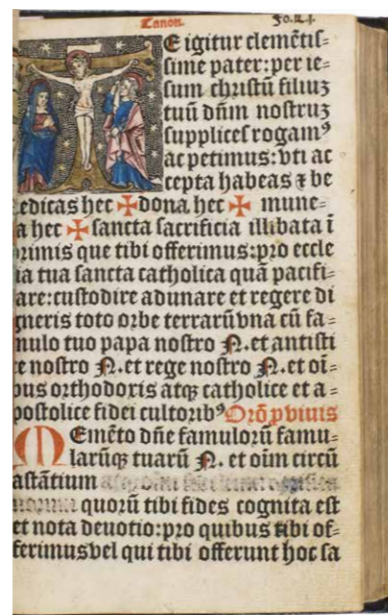 Canon. Fo. lxi.
E igitur clemētiſ=
ſime pater: per ie=
ſum chriſtū filiuꝫ
tuū dñm noſtruꝫ
ſupplices rogamꝰ
ac petimus: vti ac
cepta habeas ⁊ be
edicas hec ✠ dona hec ✠ mune=
a hec ✠ ſancta ſacrificia illibata ī
rimis que tibi offerimus: pro eccle
ia tua ſancta catholica quā pacifi=
are: cuſtodire adunare et regere di
gneris toto orbe terrarū vna cū fa=
mulo tuo papa noſtro N. et antiſti
te noſtro N. et rege noſtro N. et oī=
bus orthodoxis atqꝫ catholice et a=
poſtolice fidei cultoribꝰ Orō ꝓ viuis
MEmēto dñe famulorū famu=
larūqꝫ tuarū N. et oīm circū
aſtātium
quorū tibi fides cognita eſt
et nota deuotio: pro quibus tibi of=
ferimus vel qui tibi offerunt hoc ſa